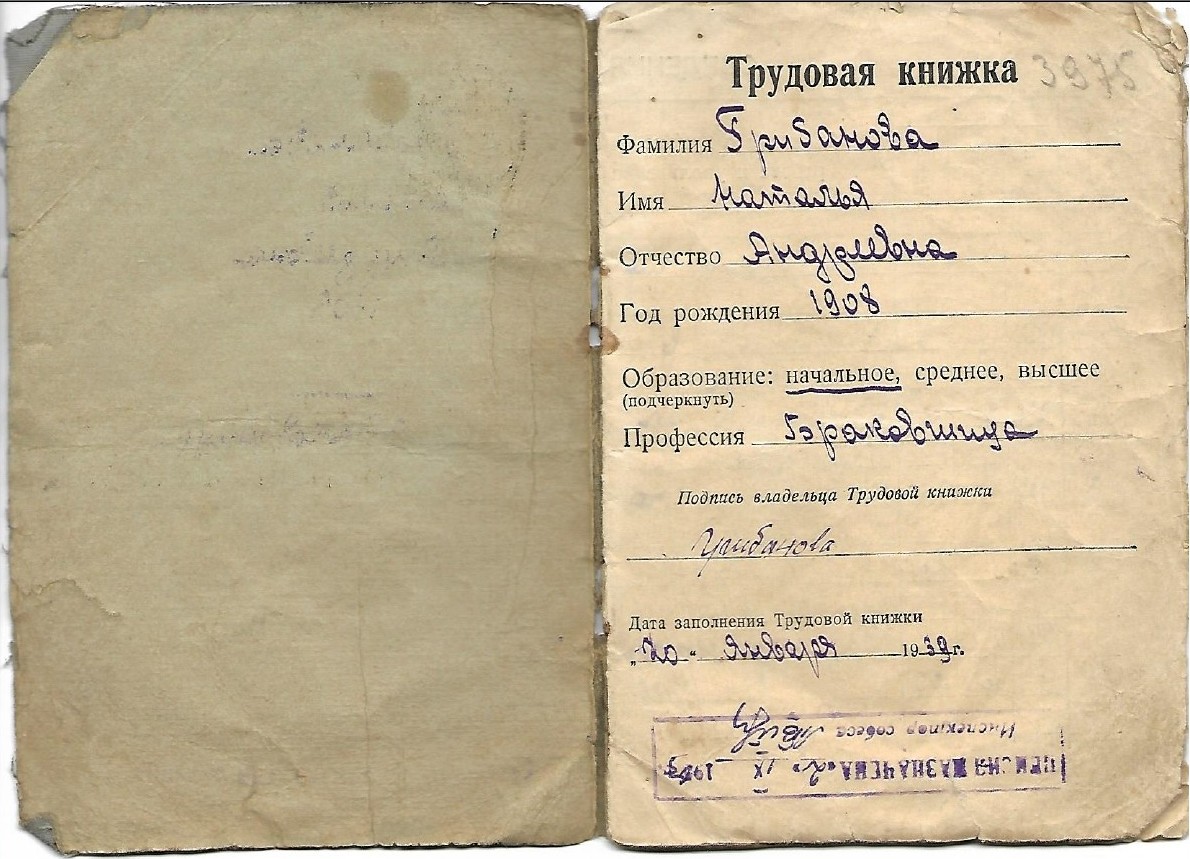 Трудовая книжка 3975
Фамилия Грибанова
Имя Наталья
Отчество Андреевна
Год рождения 1908
Образование: начальное, среднее, высшее
(подчеркнуть)
Профессия Браковщица
Подпись владельца Трудовой книжки
Грибанова
Дата заполнения Трудовой книжки
„20“ января 1939г.
ПЕНСИЯ НАЗНАЧЕНА „2“ IX 19
Инспектор собеса